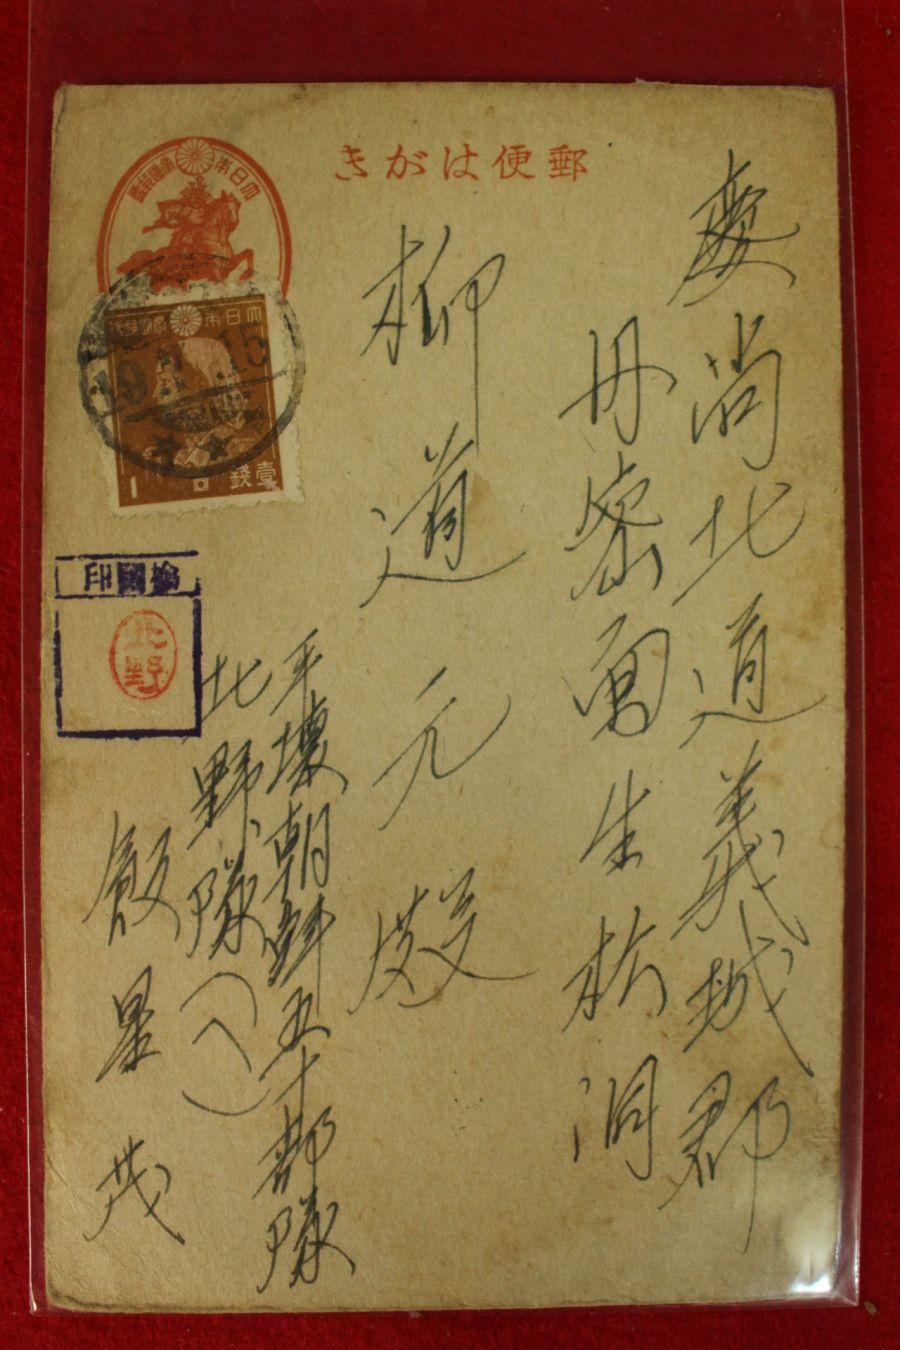 郵便はがき
大日本帝國郵便
大日本帝國郵便
19.11.15
壹錢
1
慶尚北道義城郡
丹密面生松洞
柳道元殿
平壤朝鮮五十部隊
北野隊(へ)
飯星茂
檢閱印
北野